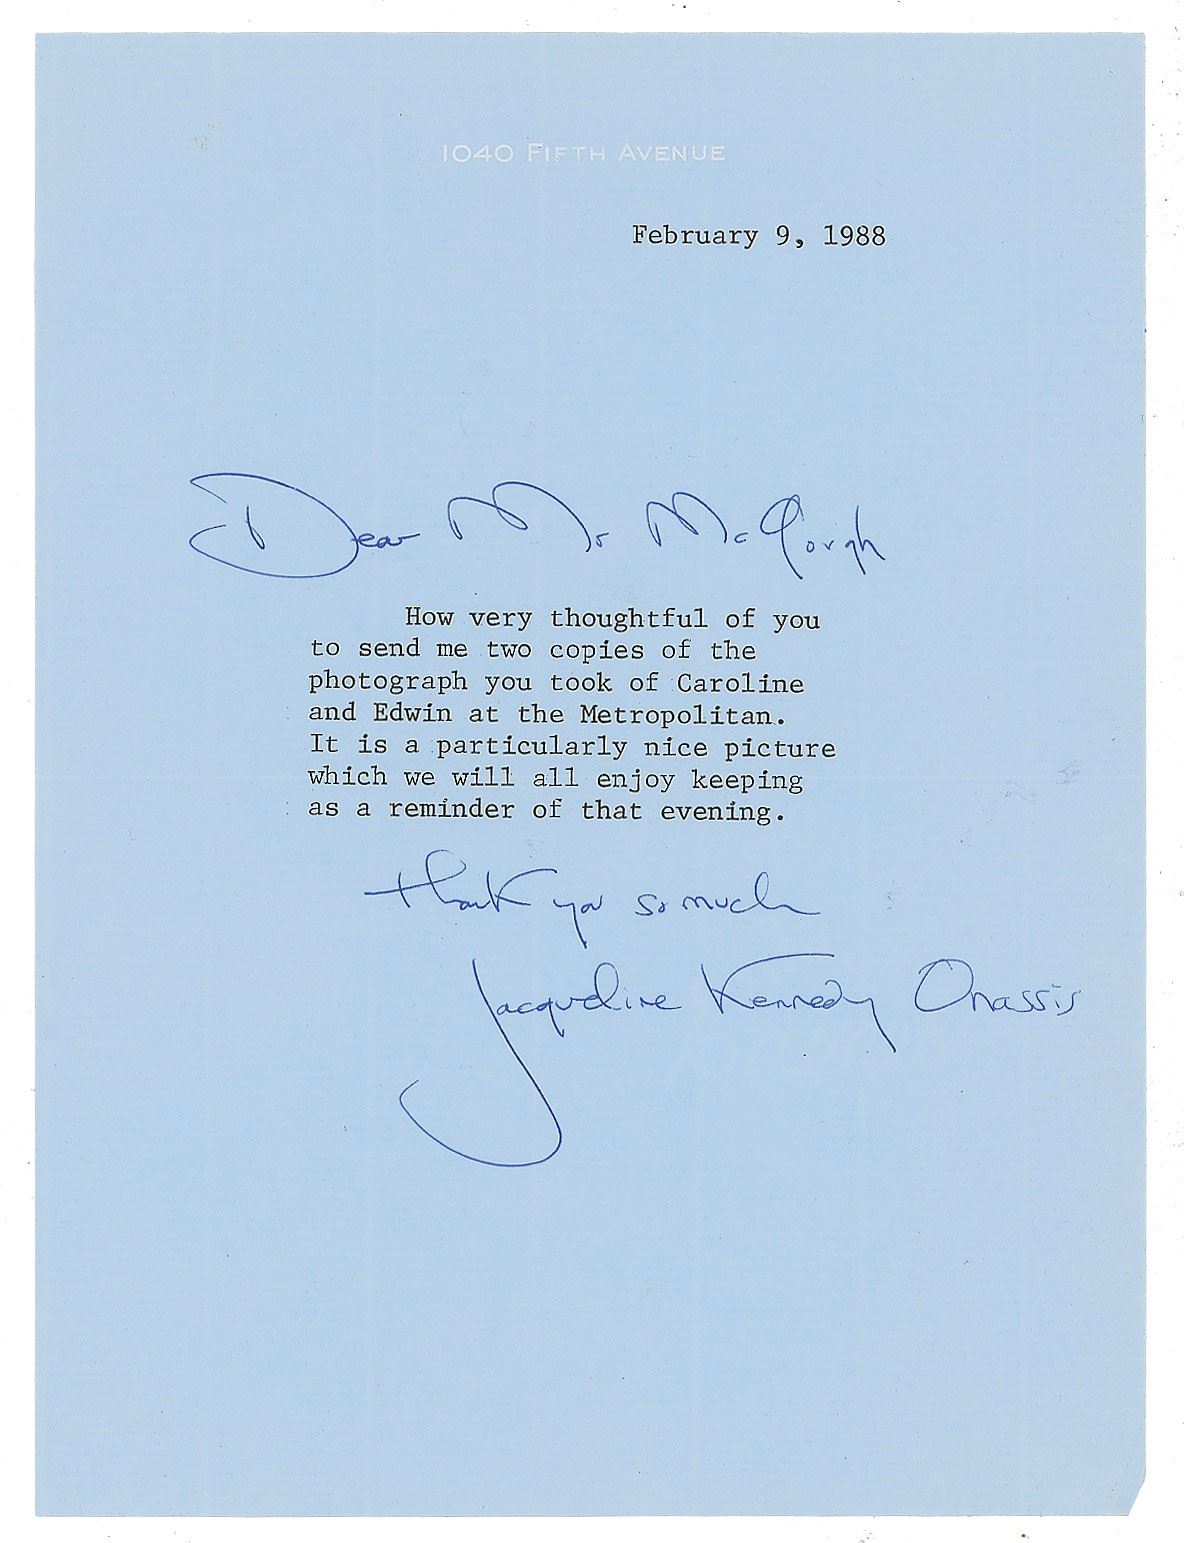 1040 FIFTH AVENUE
February 9, 1988
Dear Mr McGough
How very thoughtful of you
to send me two copies of the
photograph you took of Caroline
and Edwin at the Metropolitan.
It is a particularly nice picture
which we will all enjoy keeping
as a reminder of that evening.
thank you so much
Jacqueline Kennedy Onassis